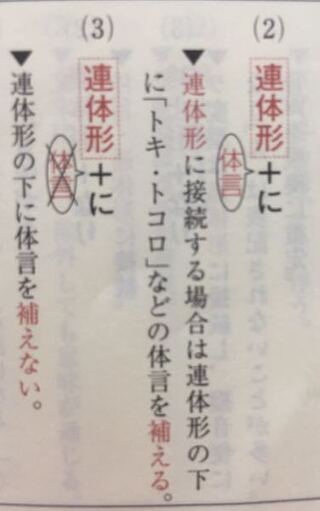 (2)
連体形+に
体言
▼連体形に接続する場合は連体形の下
に「トキ・トコロ」などの体言を補える。
(3)
連体形+に
体言
▼連体形の下に体言を補えない。